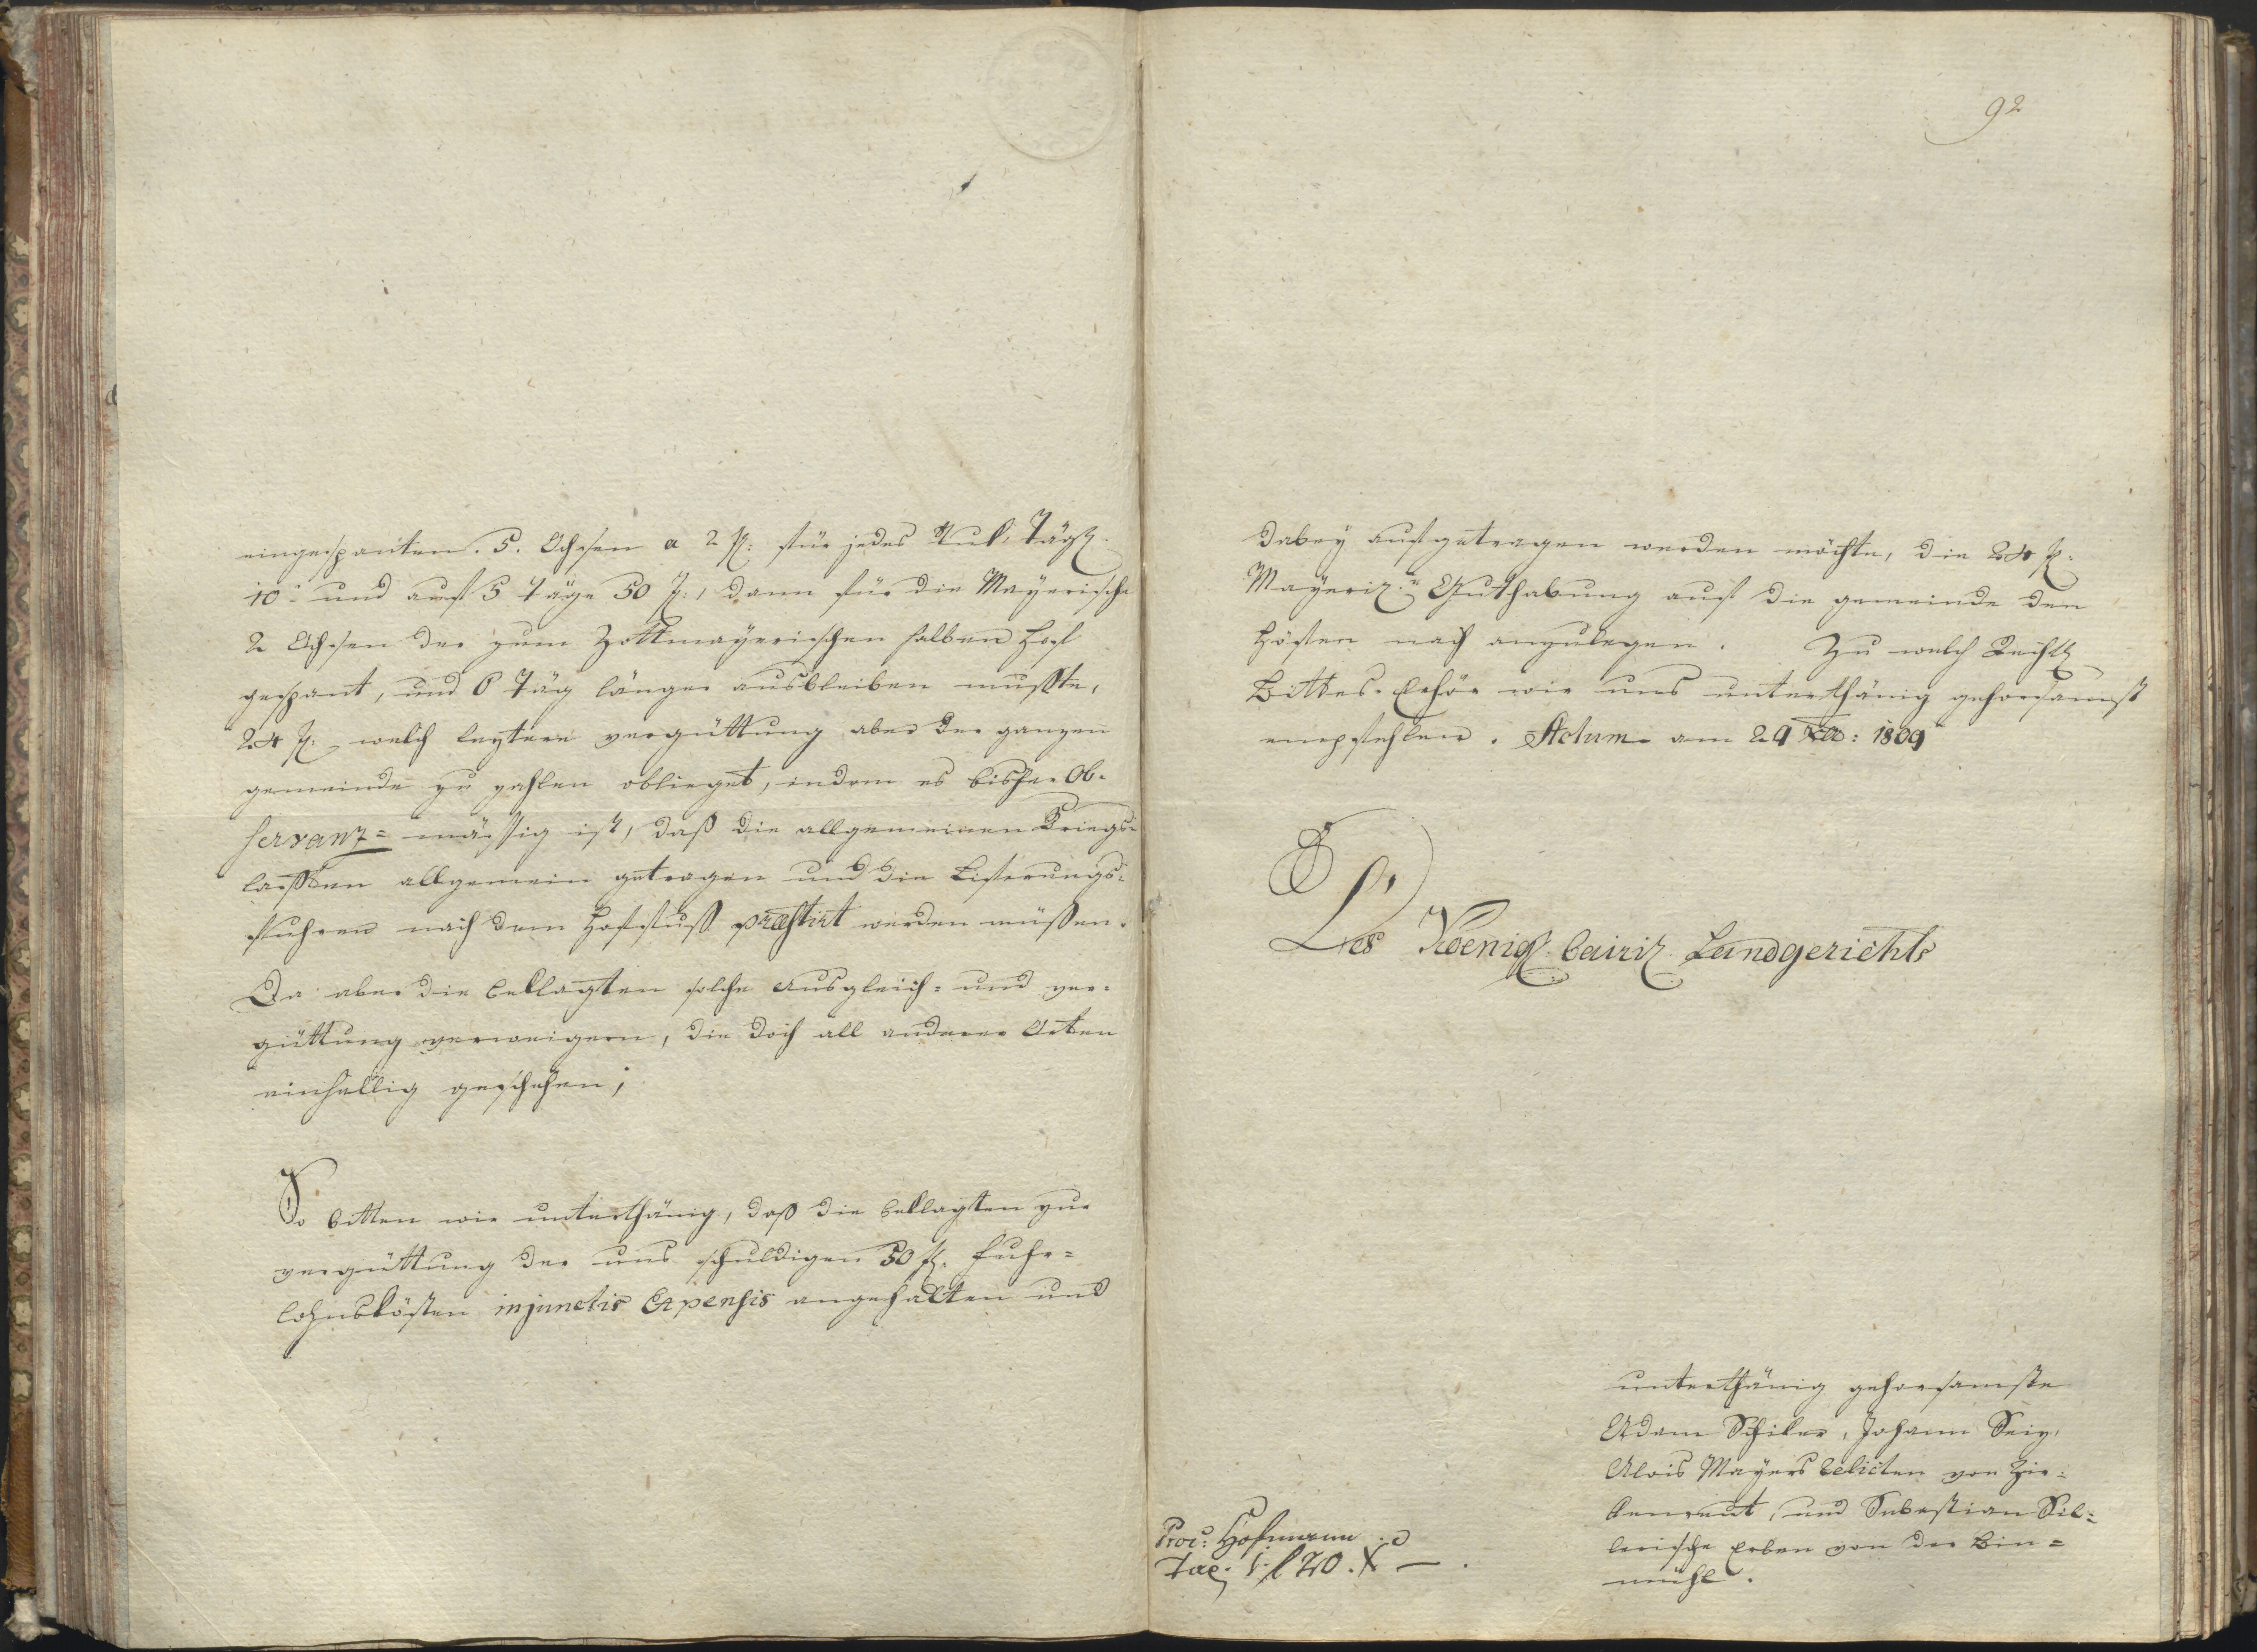 eingespanten. 5. Ochsen a 2 fl: für jedes Stuk, Tägl.
10 - und auf 5 Täge 50 fl:, dann für die Mayerische
2 Ochsen der zum Zottmayerischen halben Hof
gespant, und 6 Täg länger ausbleiben mußte,
24 fl. welch leztere vergüttung aber der ganzen
gemeinde zu zahlen oblieget, indem es bisher Ob-
servanz= mässig ist, daß die allgemeinen Kriegs-
lassten allgemein getragen und die Lieferungs-
fuhren nach dem Hoffuß præstirt werden müßen.
Da aber die beklagten solche Ausgleich- und ver-
güttung verweigern, die doch all anderer Orten
einhellig geschehen;
So bitten wir unterthänig, daß die beklagten zur
vergüttung der uns schuldigen 50 fl. fuhr=
lohnskösten injunctis Expensis angehalten und
92
dabey aufgetragen werden möchte, die 24 fl.
Mayeris. Guthabung auf die gemeinde den
Höfen nach anzulegen. Zu welch Rechtl.
Bittes-Erhör wir uns unterthänig gehorsamst
empfehlen. Actum am 29 Xbr: 1809
Des Koenigl. bairis. Landgerichts
unterthänig gehorsamste
Adam Schiler, Johann
Alois Mayers Relicten von Zir-
kenreut, und Sebastian Sil=
lerische Erben von der Bin=
mühl.
Proc: Hofmann
Tax. 1 fl 20. X —.